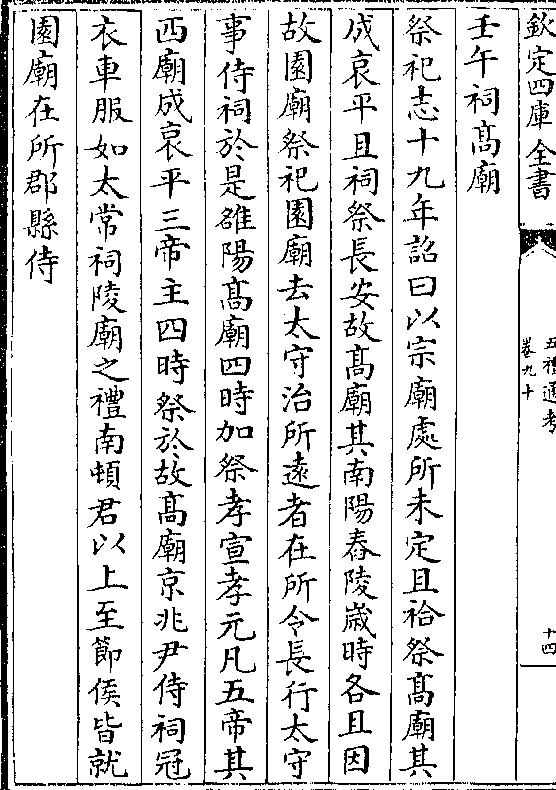 欽定四庫全書
五禮通考
卷九十
十四
壬午祠髙廟
祭祀志十九年詔曰以宗廟處所未定且祫祭髙廟其
成哀平且祠祭長安故髙廟其南陽舂陵歲時各且因
故園廟祭祀園廟去太守治所遠者在所令長行太守
事侍祠於是雒陽髙廟四時加祭孝宣孝元凡五帝其
西廟成哀平三帝主四時祭於故髙廟京兆尹侍祠冠
衣車服如太常祠陵廟之禮南頓君以上至節侯皆就
園廟在所郡縣侍